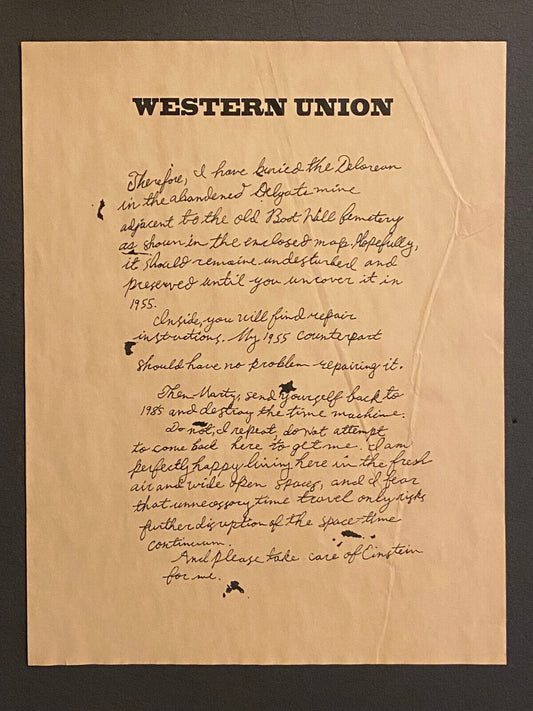 WESTERN UNION
Therefore, I have buried the Delorean
in the abandoned Delgate mine
adjacent to the old Boot Will Cemetery
as shown in the enclosed map. Hopefully,
it should remaine undesturbed and
preserved until you uncover it in
1955.
Inside, you will find repair
instructions. My 1955 counterpart
should have no problem repairing it.
Then Marty, send yourself back to
1985 and destroy the time machine.
Do not, I repeat, do not attempt
to come back here to get me. I am
perfectly happy living here in the fresh
air and wide open spaces, and I fear
that unnecessary time travel only risks
further disruption of the space-time
continuum.
And please take care of Einstein
for me.